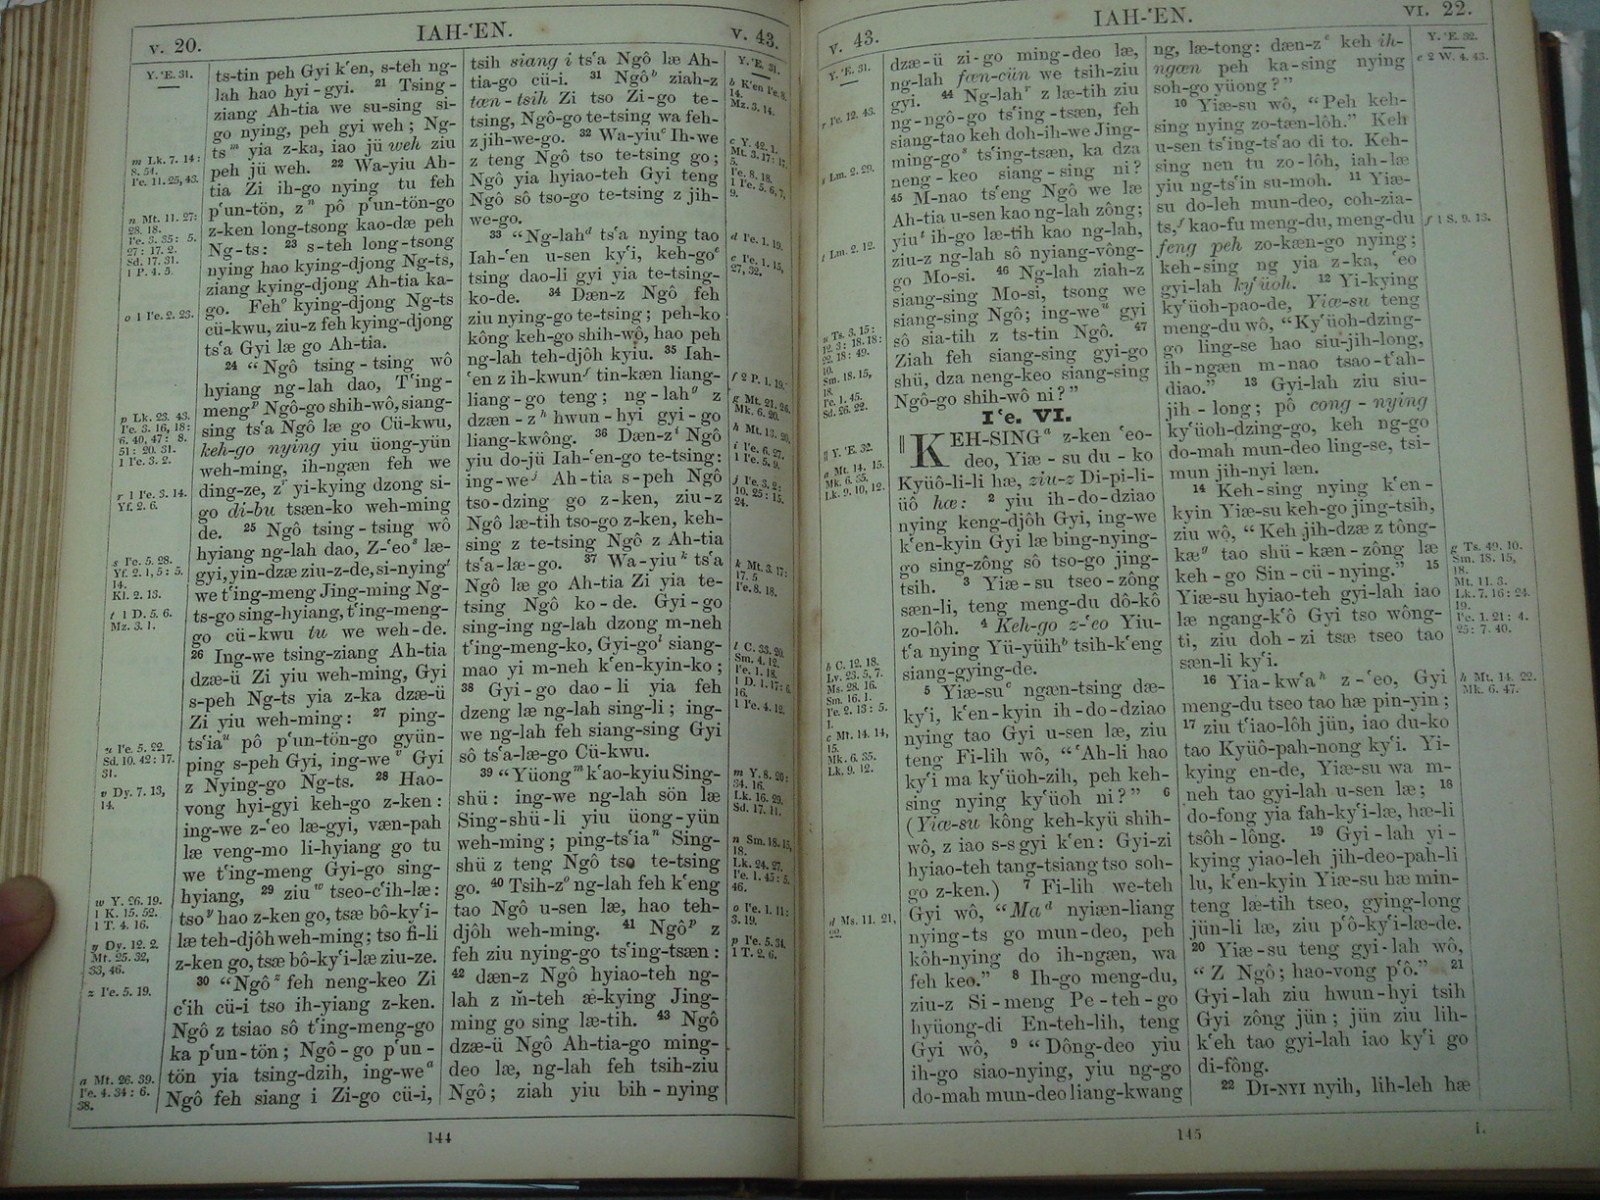 V. 20.
IAH-ʻEN.
V. 43.
Y. ʻE. 31.
m Lk. 7. 14:
8. 54.
Iʻe. 11. 25, 43.
n Mt. 11. 27:
28. 18.
Iʻe. 3. 35: 5.
27: 17. 2.
Sd. 17. 31.
1 P. 4. 5.
o 1 Iʻe. 2. 23.
p Lk. 23. 43.
Iʻe. 3. 16, 18:
6. 40, 47: 8.
51: 20. 31.
1 Iʻe. 3. 2.
r 1 Iʻe. 3. 14.
Yf. 2. 6.
s Iʻe. 5. 28.
Yf. 2. 1, 5: 5.
14.
Kl. 2. 13.
t 1 D. 5. 6.
Mz. 3. 1.
u Iʻe. 5. 22.
Sd. 10. 42: 17.
31.
v Dy. 7. 13,
14.
w Y. 26. 19.
1 K. 15. 52.
1 T. 4. 16.
y Dy. 12. 2.
Mt. 25. 32,
33, 46.
z Iʻe. 5. 19.
a Mt. 26. 39.
Iʻe. 4. 34: 6.
38.
ts-tin peh Gyi kʻen, s-teh ng-
lah hao hyi-gyi. 21 Tsing-
ziang Ah-tia we su-sing si-
go nying, peh gyi weh; Ng-
ts m yia z-ka, iao jü weh ziu
peh jü weh. 22 Wa-yiu Ah-
tia Zi ih-go nying tu feh
pʻun-tön, z n pô pʻun-tön-go
z-ken long-tsong kao-dæ peh
Ng-ts: 23 s-teh long-tsong
nying hao kying-djong Ng-ts,
ziang kying-djong Ah-tia ka-
go. Feh o kying-djong Ng-ts
cü-kwu, ziu-z feh kying-djong
tsʻa Gyi læ go Ah-tia.
24 “Ngô tsing-tsing wô
hyiang ng-lah dao, Tʻing-
meng p Ngô-go shih-wô, siang-
sing tsʻa Ngô læ go Cü-kwu,
keh-go nying yiu üong-yün
weh-ming, ih-ngæn feh we
ding-ze, z r yi-kying dzong si-
go di-bu tsæn-ko weh-ming
de. 25 Ngô tsing-tsing wô
hyiang ng-lah dao, Z-ʻeo s læ-
gyi, yin-dzæ ziu-z-de, si-nying t
we tʻing-meng Jing-ming Ng-
ts-go sing-hyiang, tʻing-meng-
go cü-kwu tu we weh-de.
26 Ing-we tsing-ziang Ah-tia
dzæ-ü Zi yiu weh-ming, Gyi
s-peh Ng-ts yia z-ka dzæ-ü
Zi yiu weh-ming: 27 ping-
tsʻia u pô pʻun-tön-go gyün-
ping s-peh Gyi, ing-we v Gyi
z Nying-go Ng-ts. 28 Hao-
vong hyi-gyi keh-go z-ken:
ing-we z-ʻeo læ-gyi, væn-pah
læ veng-mo li-hyiang go tu
we tʻing-meng Gyi-go sing-
hyiang, 29 ziu w tseo-cʻih-læ:
tso y hao z-ken go, tsæ bô-kyʻi-
læ teh-djôh weh-ming; tso fi-li
z-ken go, tsæ bô-kyʻi-læ ziu-ze.
30 “Ngô z feh neng-keo Zi
cʻih cü-i tso ih-yiang z-ken.
Ngô z tsiao sô tʻing-meng-go
ka pʻun-tön; Ngô-go pʻun-
tön yia tsing-dzih, ing-we a
Ngô feh siang i Zi-go cü-i,
tsih siang i tsʻa Ngô læ Ah-
tia-go cü-i. 31 Ngô b ziah-z
tæn-tsih Zi tso Zi-go te-
tsing, Ngô-go te-tsing wa feh-
z jih-we-go. 32 Wa-yiu c Ih-we
z teng Ngô tso te-tsing go;
Ngô yia hyiao-teh Gyi teng
Ngô sô tso-go te-tsing z jih-
we-go.
33 “Ng-lah d tsʻa nying tao
Iah-ʻen u-sen kyʻi, keh-go e
tsing dao-li gyi yia te-tsing-
ko-de. 34 Dæn-z Ngô feh
ziu nying-go te-tsing; peh-ko
kông keh-go shih-wô, hao peh
ng-lah teh-djôh kyiu. 35 Iah-
ʻen z ih-kwun f tin-kæn liang-
liang-go teng; ng-lah g z
dzæn-z h hwun-hyi gyi-go
liang-kwông. 36 Dæn-z i Ngô
yiu do-jü Iah-ʻen-go te-tsing:
ing-we j Ah-tia s-peh Ngô
tso-dzing go z-ken, ziu-z
Ngô læ-tih tso-go z-ken, keh-
sing z te-tsing Ngô z Ah-tia
tsʻa-læ-go. 37 Wa-yiu k tsʻa
Ngô læ go Ah-tia Zi yia te-
tsing Ngô ko-de. Gyi-go
sing-ing ng-lah dzong m-neh
tʻing-meng-ko, Gyi-go l siang-
mao yi m-neh kʻen-kyin-ko;
38 Gyi-go dao-li yia feh
dzeng læ ng-lah sing-li; ing-
we ng-lah feh siang-sing Gyi
sô tsʻa-læ-go Cü-kwu.
39 “Yüong m kʻao-kyiu Sing-
shü: ing-we ng-lah sön læ
Sing-shü-li yiu üong-yün
weh-ming; ping-tsʻia n Sing-
shü z teng Ngô tso te-tsing
go. 40 Tsih-z o ng-lah feh kʻeng
tao Ngô u-sen læ, hao teh-
djôh weh-ming. 41 Ngô p z
feh ziu nying-go tsʻing-tsæn:
42 dæn-z Ngô hyiao-teh ng-
lah z m̄-teh æ-kying Jing-
ming go sing læ-tih. 43 Ngô
dzæ-ü Ngô Ah-tia-go ming-
deo læ, ng-lah feh tsih-ziu
Ngô; ziah yiu bih-nying
Y. ʻE. 31.
b Kʻen Iʻe. 8.
14.
Mz. 3. 14.
c Y. 42. 1.
Mt. 3. 17: 17.
5.
Iʻe. 8. 18.
1 Iʻe. 5. 6, 7,
9.
d Iʻe. 1. 19.
e Iʻe. 1. 15,
27, 32,
f 2 P. 1. 19.
g Mt. 21. 26.
Mk. 6. 20.
h Mt. 13. 20.
i Iʻe. 6. 27.
1 Iʻe. 5. 9.
j Iʻe. 3. 2:
10. 25: 15.
24.
k Mt. 3. 17:
17. 5
Iʻe. 8. 18.
l C. 33. 20.
Sm. 4. 12.
Iʻe. 1. 18.
1 D. 1. 17: 6.
16.
1 Iʻe. 4. 12.
m Y. 8. 20:
34. 16.
Lk. 16. 29.
Sd. 17. 11.
n Sm. 18. 15,
18.
Lk. 24. 27.
Iʻe. 1. 45: 5.
46.
o Iʻe. 1. 11:
3. 19.
p Iʻe. 5. 34.
1 T. 2. 6.
144
V. 43.
IAH-ʻEN.
VI. 22.
Y. ʻE. 31.
r Iʻe. 12. 43.
s Lm. 2. 29.
t Lm. 2. 12.
u Ts. 3. 15:
12. 3: 18. 18:
22. 18: 49.
10.
Sm. 18. 15,
18.
Iʻe. 1. 45.
Sd. 26. 22.
‖ Y. ʻE. 32.
a Mt. 14. 15.
Mk. 6. 35.
Lk. 9. 10, 12.
b C. 12. 18.
Lv. 23. 5, 7.
Ms. 28. 16.
Sm. 16. 1.
Iʻe. 2. 13: 5.
1.
c Mt. 14. 14,
15.
Mk. 6. 35.
Lk. 9. 12.
d Ms. 11. 21,
22.
dzæ-ü zi-go ming-deo læ,
ng-lah fæn-cün we tsih-ziu
gyi. 44 Ng-lah r z læ-tih ziu
ng-ngô-go tsʻing-tsæn, feh
siang-tao keh doh-ih-we Jing-
ming-go s tsʻing-tsæn, ka dza
neng-keo siang-sing ni?
45 M-nao tsʻeng Ngô we læ
Ah-tia u-sen kao ng-lah zông;
yiu t ih-go læ-tih kao ng-lah,
ziu-z ng-lah sô nyiang-vông-
go Mo-si. 46 Ng-lah ziah-z
siang-sing Mo-si, tsong we
siang-sing Ngô; ing-we u gyi
sô sia-tih z ts-tin Ngô. 47
Ziah feh siang-sing gyi-go
shü, dza neng-keo siang-sing
Ngô-go shih-wô ni?”
Iʻe. VI.
‖ KEH-SING a z-ken ʻeo-
deo, Yiæ-su du-ko
Kyüô-li-li hæ, ziu-z Di-pi-li-
üô hæ: 2 yiu ih-do-dziao
nying keng-djôh Gyi, ing-we
kʻen-kyin Gyi læ bing-nying-
go sing-zông sô tso-go jing-
tsih. 3 Yiæ-su tseo-zông
sæn-li, teng meng-du dô-kô
zo-lôh. 4 Keh-go z-ʻeo Yiu-
tʻa nying Yü-yüih b tsih-kʻeng
siang-gying-de.
5 Yiæ-su c ngæn-tsing dæ-
kyʻi, kʻen-kyin ih-do-dziao
nying tao Gyi u-sen læ, ziu
teng Fi-lih wô, “ʻAh-li hao
kyʻi ma kyʻüoh-zih, peh keh-
sing nying kyʻüoh ni?” 6
(Yiæ-su kông keh-kyü shih-
wô, z iao s-s gyi kʻen: Gyi-zi
hyiao-teh tang-tsiang tso soh-
go z-ken.) 7 Fi-lih we-teh
Gyi wô, “Ma d nyiæn-liang
nying-ts go mun-deo, peh
kôh-nying do ih-ngæn, wa
feh keo.” 8 Ih-go meng-du,
ziu-z Si-meng Pe-teh-go
hyüong-di En-teh-lih, teng
Gyi wô, 9 “Dông-deo yiu
ih-go siao-nying, yiu ng-go
do-mah mun-deo liang-kwang
ng, læ-tong: dæn-z e keh ih-
ngæn peh ka-sing nying
soh-go yüong?”
10 Yiæ-su wô, “Peh keh-
sing nying zo-tæn-lôh.” Keh
u-sen tsʻing-tsʻao di to. Keh-
sing nen tu zo-lôh, iah-læ
yiu ng-tsʻin su-moh. 11 Yiæ-
su do-leh mun-deo, coh-zia-
ts, f kao-fu meng-du, meng-du
feng peh zo-kæn-go nying;
keh-sing ng yia z-ka, ʻeo
gyi-lah kyʻüoh. 12 Yi-kying
kyʻüoh-pao-de, Yiæ-su teng
meng-du wô, “Kyʻüoh-dzing-
go ling-se hao siu-jih-long,
ih-ngæn m-nao tsao-tʻah-
diao.” 13 Gyi-lah ziu siu-
jih-long; pô cong-nying
kyʻüoh-dzing-go, keh ng-go
do-mah mun-deo ling-se, tsi-
mun jih-nyi læn.
14 Keh-sing nying kʻen-
kyin Yiæ-su keh-go jing-tsih,
ziu wô, “Keh jih-dzæ z tông-
kæ g tao shü-kæn-zông læ
keh-go Sin-cü-nying.” 15
Yiæ-su hyiao-teh gyi-lah iao
læ ngang-kʻô Gyi tso wông-
ti, ziu doh-zi tsæ tseo tao
sæn-li kyʻi.
16 Yia-kwʻa h z-ʻeo, Gyi
meng-du tseo tao hæ pin-yin;
17 ziu tʻiao-lôh jün, iao du-ko
tao Kyüô-pah-nong kyʻi. Yi-
kying en-de, Yiæ-su wa m-
neh tao gyi-lah u-sen læ; 18
do-fong yia fah-kyʻi-læ, hæ-li
tsôh-lông. 19 Gyi-lah yi-
kying yiao-leh jih-deo-pah-li
lu, kʻen-kyin Yiæ-su hæ min-
teng læ-tih tseo, gying-long
jün-li læ, ziu pʻô-kyʻi-læ-de.
20 Yiæ-su teng gyi-lah wô,
“Z Ngô; hao-vong pʻô.” 21
Gyi-lah ziu hwun-hyi tsih
Gyi zông jün; jün ziu lih-
kʻeh tao gyi-lah iao kyʻi go
di-fông.
22 DI-NYI nyih, lih-leh hæ
Y. ʻE. 32.
e 2 W. 4. 43.
f 1 S. 9. 13.
g Ts. 49. 10.
Sm. 18. 15,
18.
Mt. 11. 3.
Lk. 7. 16: 24.
19.
Iʻe. 1. 21: 4.
25: 7. 40.
h Mt. 14. 22.
Mk. 6. 47.
145
1.